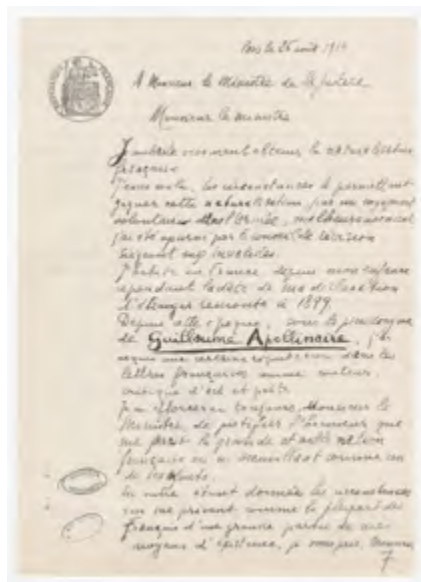 Paris le 26 août 1914
A Monsieur le Ministre de la Justice
Monsieur le ministre
J'ambitionne vivement obtenir la naturalisation
française
les circonstances le permettant
gagner cette naturalisation par un engagement
volontaire dans l'armée, malheureusement
j'ai été ajourné par le conseil de révision
siégeant aux invalides.
J'habite en France depuis mon enfance
cependant la date de ma déclaration
d'étranger remonte à 1899.
Depuis cette époque, sous le pseudonyme
de Guillaume Apollinaire, j'ai
acquis une certaine réputation dans les
lettres françaises comme auteur,
critique d'art et poète
Je m'efforcerai toujours, Monsieur le
Ministre, de justifier l'honneur que
me ferait la grande et noble nation
française en m'accueillant comme un
de
En outre étant données les circonstances
qui me privent comme la plupart des
français d'une grande partie de mes
moyens d'existence, je vous prie, Monsieur